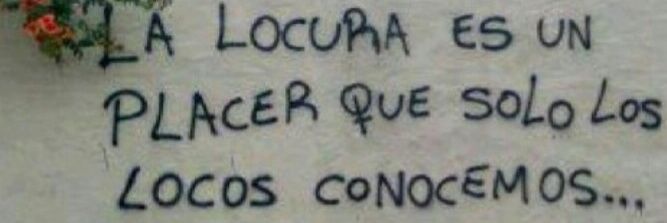 LA LOCURA ES UN
PLACER QUE SOLO LOS
LOCOS CONOCEMOS...